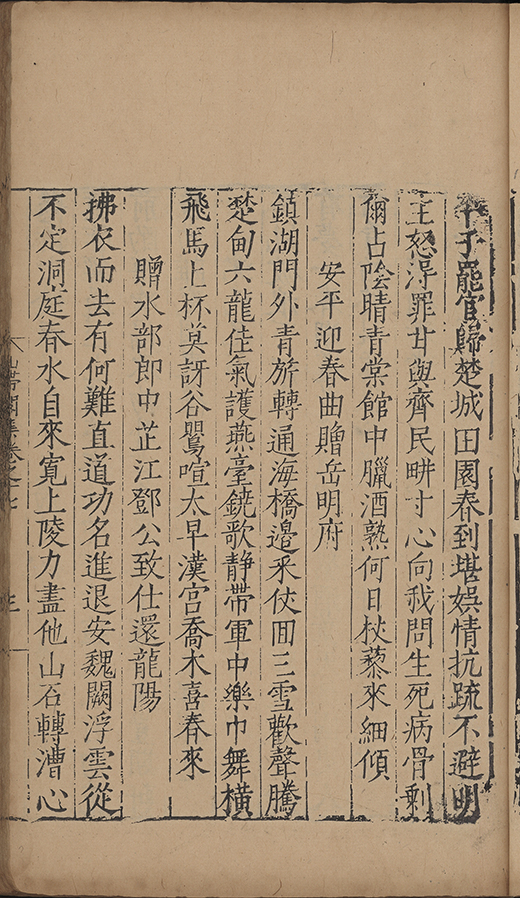 子罷官歸楚城田園春到堪娛情抗疏不避明
主怒淂罪甘與齊民畊寸心向我問生死病骨剩
爾占陰晴青棠館中臘酒熟何日杖藜來細傾
安平迎春曲贈岳明府
鎮湖門外青旂轉通海橋邊釆仗回三雪歡聲騰
楚甸六龍佳氣護燕臺鐃歌靜帶軍中樂巾舞橫
飛馬上杯莫訝谷鸎喧太早漢宮喬木喜春來
贈水部郎中芷江鄧公致仕還龍陽
拂衣而去有何難直道功名進退安魏闕浮雲從
不定洞庭春水自來寬上陵力盡他山石轉漕心
卷之七